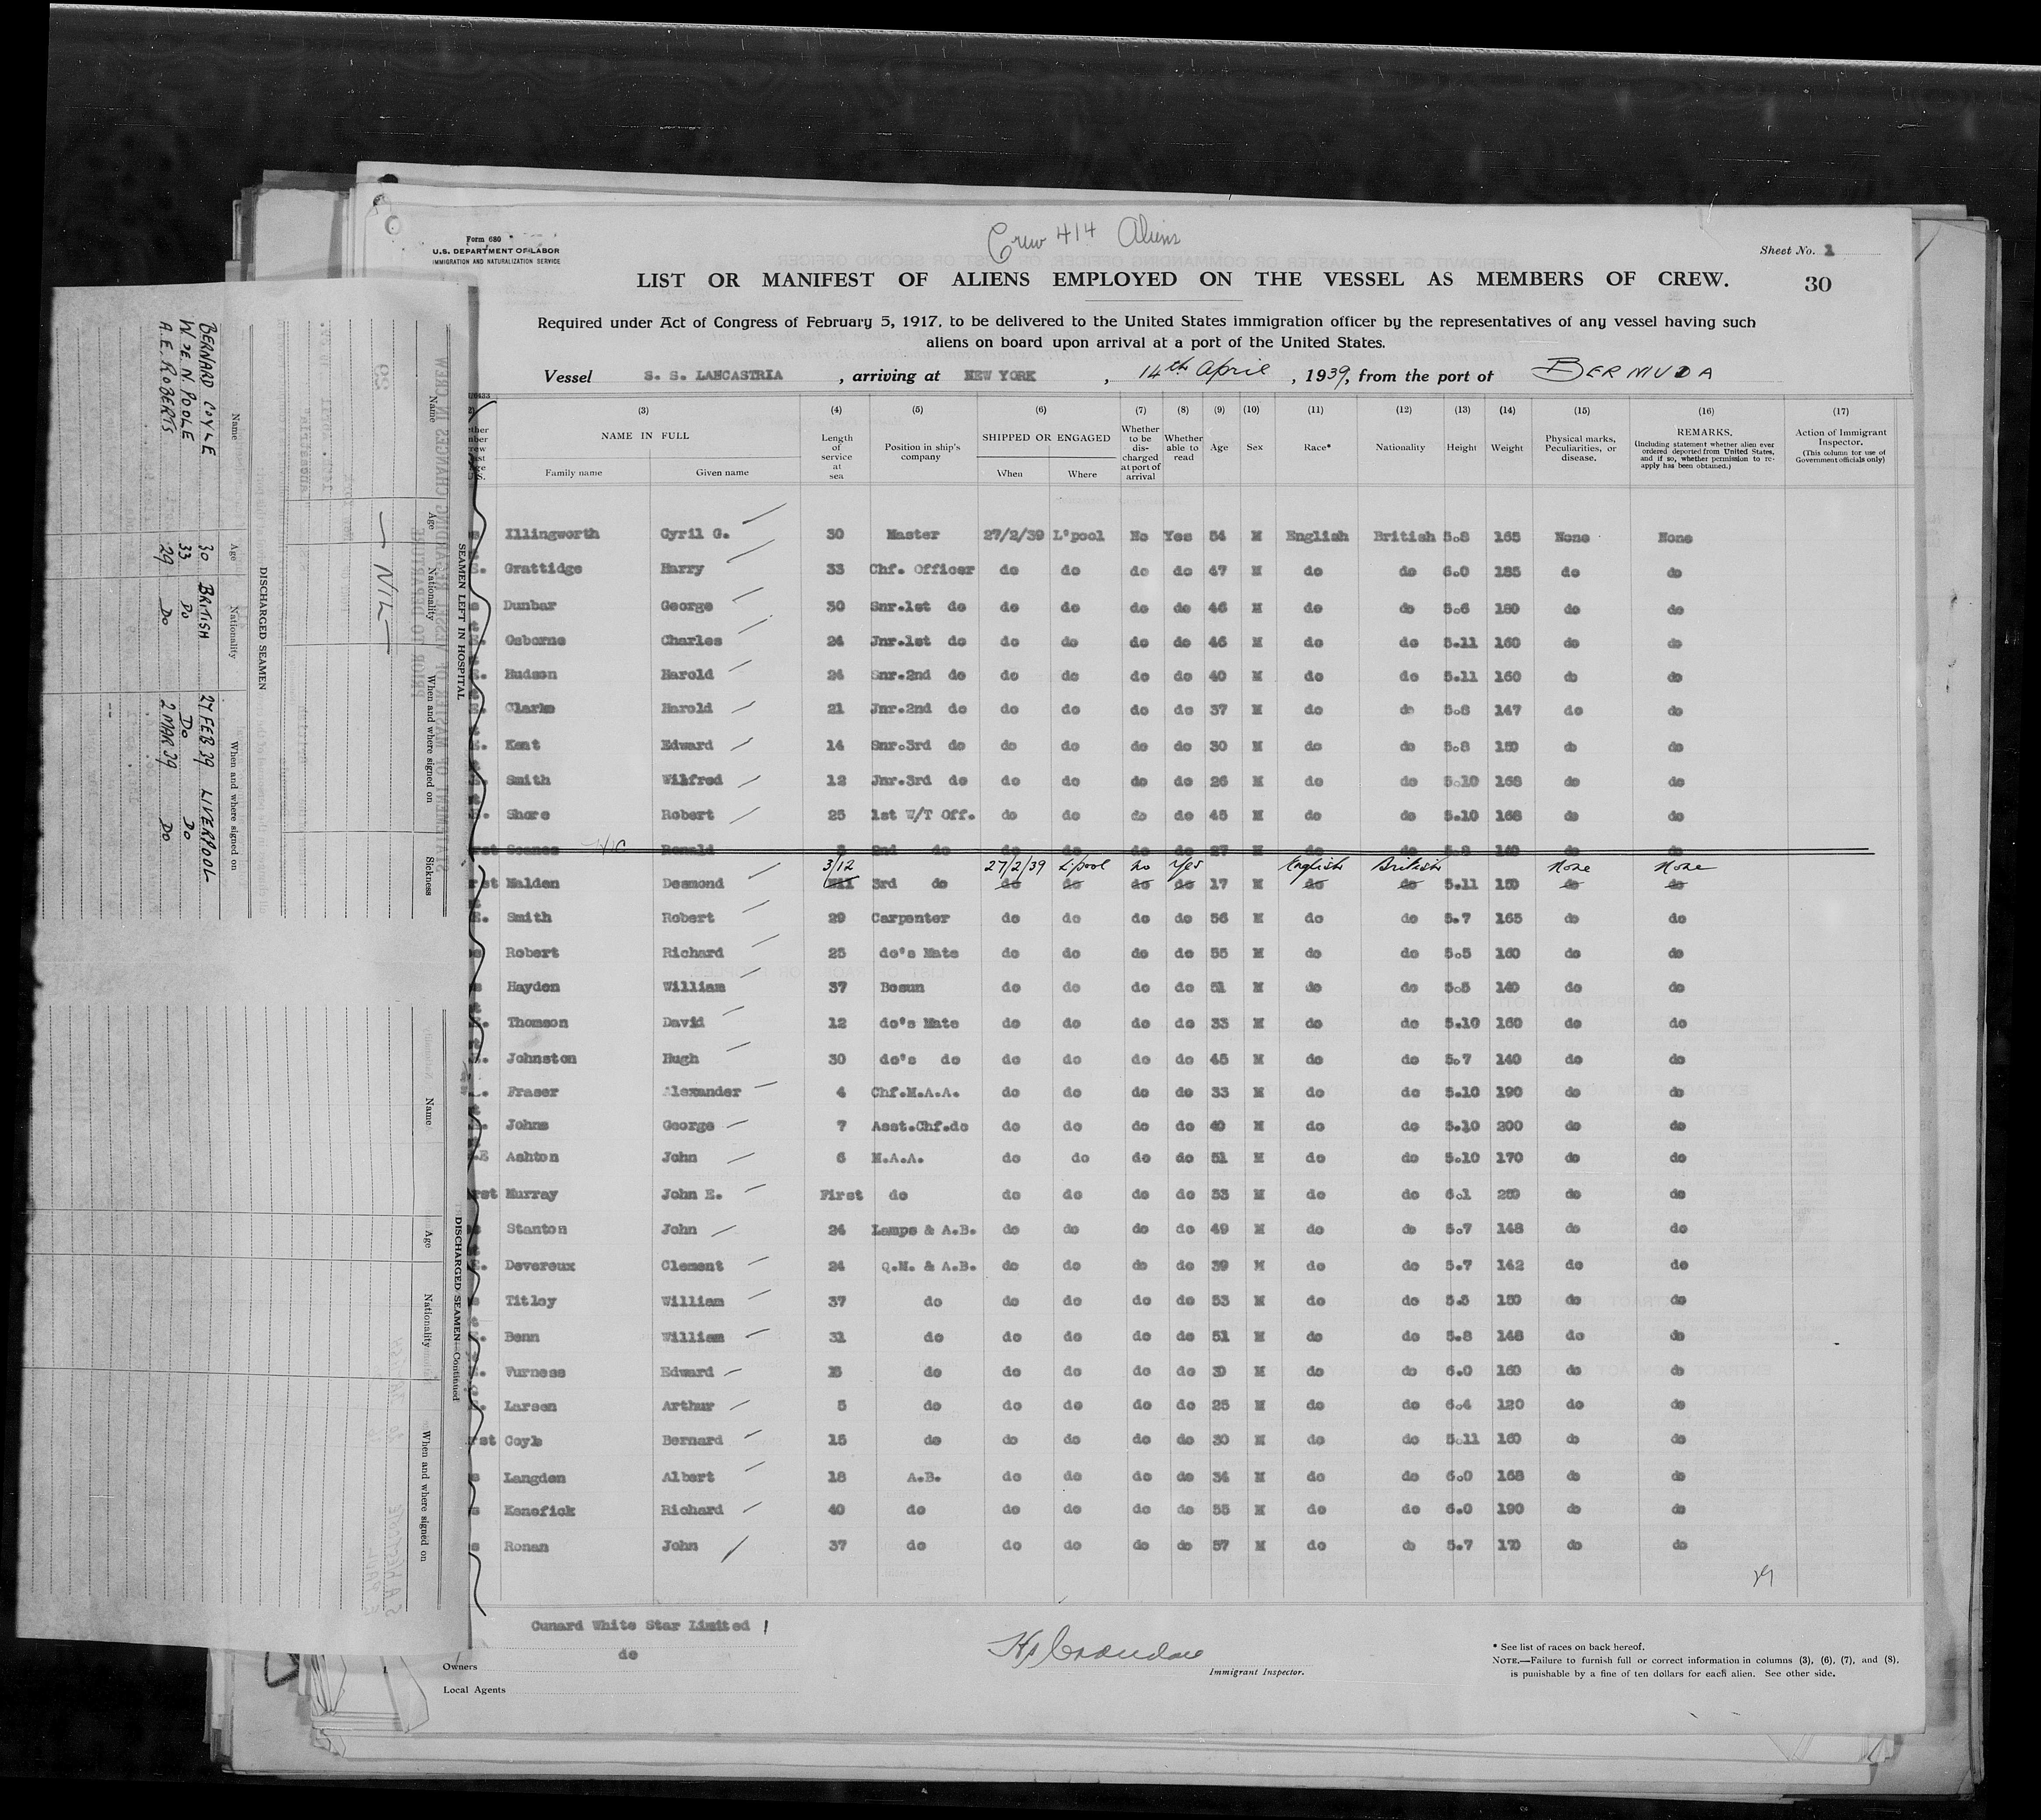 Crew 414 Aliens
Form 680
U.S. DEPARTMENT OF LABOR
IMMIGRATION AND NATURALIZATION SERVICE
Sheet No. 1
LIST OR MANIFEST OF ALIENS EMPLOYED ON THE VESSEL AS MEMBERS OF CREW.
30
Required under Act of Congress of February 5, 1917, to be delivered to the United States immigration officer by the representatives of any vessel having such
aliens on board upon arrival at a port of the United States.
Vessel S. S. LANCASTRIA, arriving at NEW YORK, 14th April, 1939, from the port of BERMUDA
(3) (4) (5) (6) (7) (8) (9) (10) (11) (12) (13) (14) (15) (16) (17)
NAME IN FULL
Family name Given name
Length of service at sea
Position in ship's company
SHIPPED OR ENGAGED
When Where
Whether to be discharged at port of arrival
Whether able to read
Age
Sex
Race*
Nationality
Height
Weight
Physical marks, Peculiarities, or disease.
REMARKS.
(Including statement whether alien ever ordered deported from United States, and if so, whether permission to re-apply has been obtained.)
Action of Immigrant Inspector.
(This column for use of Government officials only)
Illingworth Cyril G. 30 Master 27/2/39 L'pool No Yes 54 M English British 5.8 165 None None
Grattidge Harry 33 Chf. Officer do do do do 47 M do do 6.0 185 do do
Dunbar George 30 Snr.1st do do do do do 46 M do do 5.6 180 do do
Osborne Charles 24 Jnr.1st do do do do do 46 M do do 5.11 160 do do
Hudson Harold 24 Snr.2nd do do do do do 40 M do do 5.11 160 do do
Clarke Harold 21 Jnr.2nd do do do do do 37 M do do 5.8 147 do do
Kent Edward 14 Snr.3rd do do do do do 30 M do do 5.8 150 do do
Smith Wilfred 12 Jnr.3rd do do do do do 26 M do do 5.10 168 do do
Shore Robert 25 1st W/T Off. do do do do 45 M do do 5.10 168 do do
Ronald 2nd do do do do do 27 M do do 5.8 140 do do
3/12 27/2/39 L'pool No Yes English British None None
rst Malden Desmond Nil 3rd do do do do do 17 M do do 5.11 150 do do
Smith Robert 29 Carpenter do do do do 56 M do do 5.7 165 do do
Robert Richard 25 do's Mate do do do do 55 M do do 5.5 160 do do
Hayden William 37 Bosun do do do do 51 M do do 5.5 140 do do
Thomson David 12 do's Mate do do do do 33 M do do 5.10 160 do do
Johnston Hugh 30 do's do do do do do 45 M do do 5.7 140 do do
Fraser Alexander 4 Chf.M.A.A. do do do do 33 M do do 5.10 190 do do
Johns George 7 Asst.Chf.do do do do do 40 M do do 5.10 200 do do
Ashton John 6 M.A.A. do do do do 51 M do do 5.10 170 do do
rst Murray John E. First do do do do do 53 M do do 6.1 250 do do
Stanton John 24 Lamps & A.B. do do do do 49 M do do 5.7 148 do do
Devereux Clement 24 Q.M. & A.B. do do do do 39 M do do 5.7 142 do do
Titley William 37 do do do do do 53 M do do 5.5 150 do do
Benn William 31 do do do do do 51 M do do 5.8 148 do do
Furness Edward do do do do do M do do 6.0 160 do do
Larsen Arthur 5 do do do do do 25 M do do 6.4 120 do do
rst Coyle Bernard 15 do do do do do 30 M do do 5.11 160 do do
Langden Albert 18 A.B. do do do do 34 M do do 6.0 168 do do
Kenefick Richard 40 do do do do do 55 M do do 6.0 190 do do
Ronan John 37 do do do do do 57 M do do 5.7 170 do do
Cunard White Star Limited
do
Owners
Local Agents
Immigrant Inspector.
* See list of races on back hereof.
NOTE.—Failure to furnish full or correct information in columns (3), (6), (7), and (8), is punishable by a fine of ten dollars for each alien. See other side.
SEAMEN LEFT IN HOSPITAL
Name Age Nationality When and where signed on Sickness
— NIL —
DISCHARGED SEAMEN
Name Age Nationality When and where signed on
BERNARD COYLE 30 BRITISH 27 FEB 39 LIVERPOOL
W. de N. POOLE 33 DO DO DO
A.E. ROBERTS 29 DO 2 MAR 39 DO
DISCHARGED SEAMEN—Continued
Name Age Nationality When and where signed on